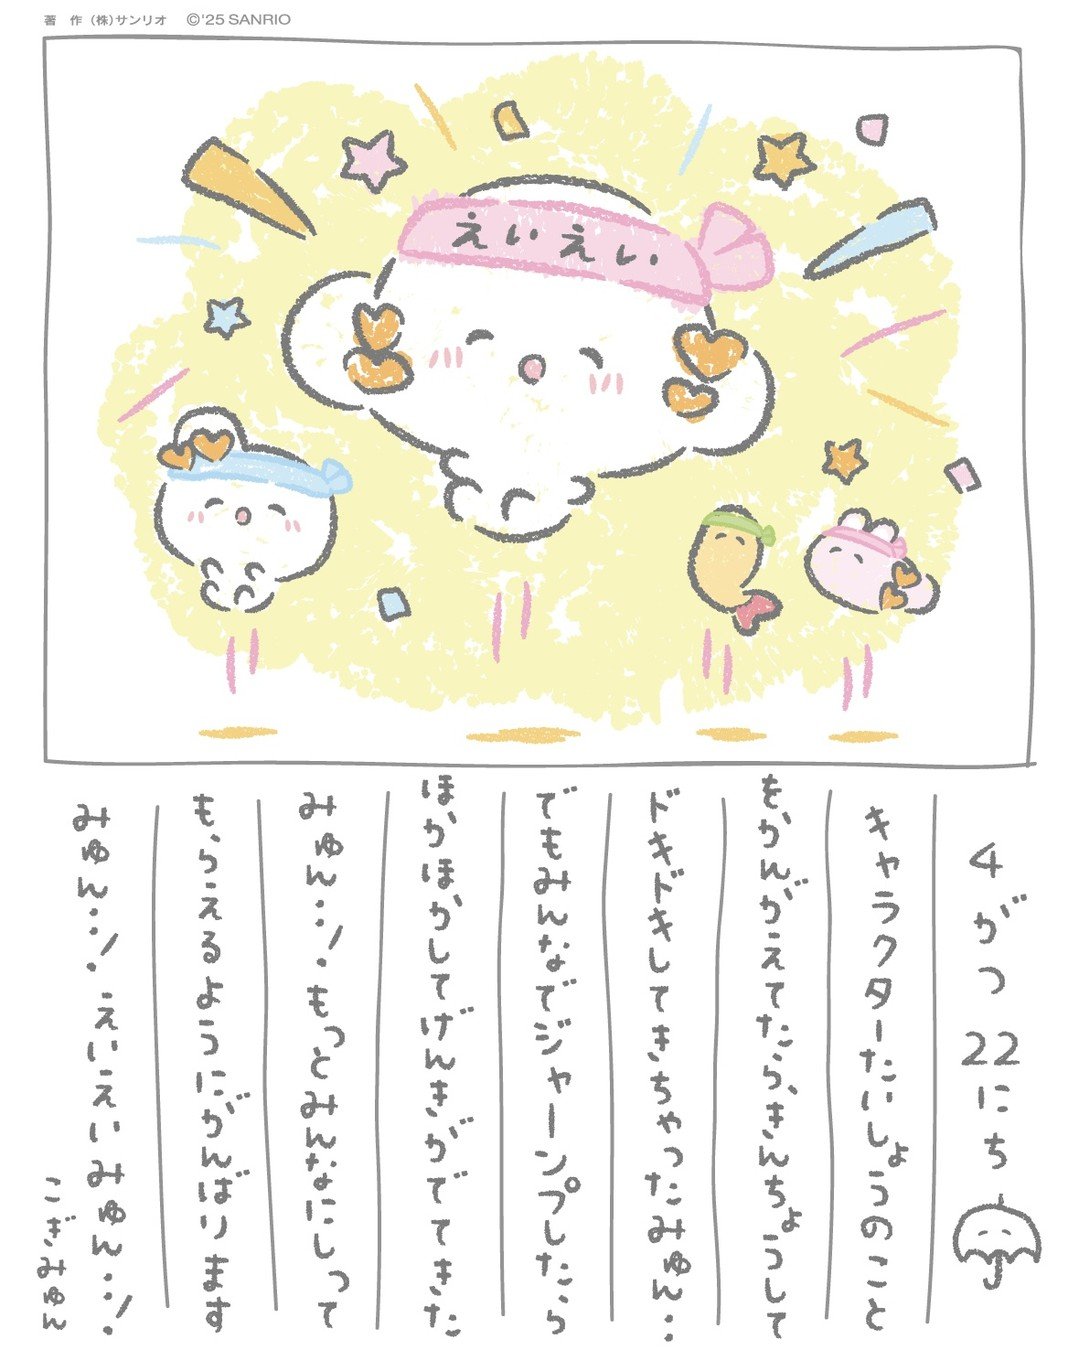 著 作 (株)サンリオ ©'25 SANRIO
えいえい
4がつ 22にち
キャラクターたいしょうのこと
を、かんがえてたら、きんちょうして
ドキドキしてきちゃったみゅん…
でもみんなでジャーンプしたら
ほかほかしてげんきがでてきた
みゅん…!もっとみんなにしって
もらえるようにがんばります
みゅん…!えいえいみゅん…!
こぎみゅん